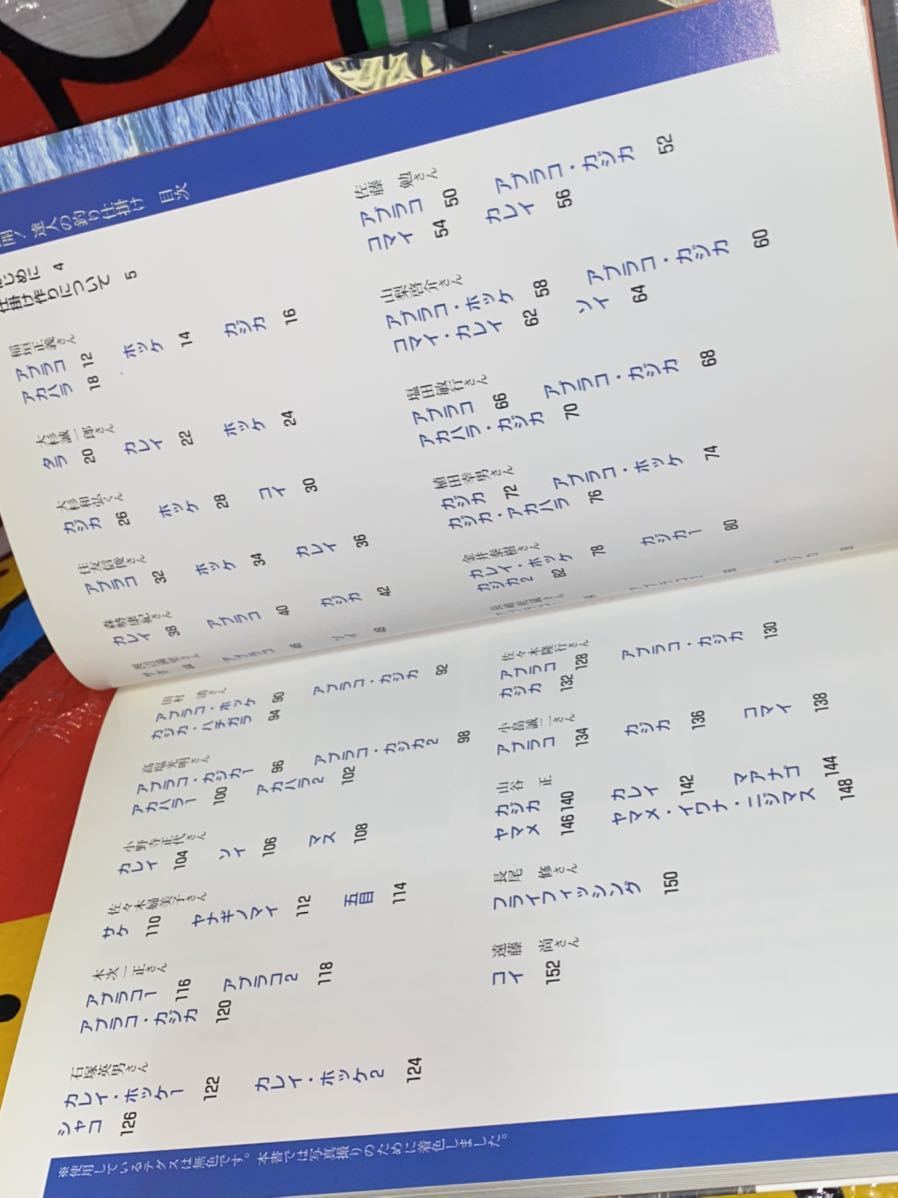 達人の釣り仕掛け 目次
じめに 4
仕掛け作りについて 5
稲垣正義さん
アブラコ 12
ホッケ 14
カジカ 16
アカハラ 18
大杉誠一郎さん
タラ 20
カレイ 22
ホッケ 24
大杉和弘くん
カジカ 26
ホッケ 28
コイ 30
住友信優さん
アブラコ 32
ホッケ 34
カレイ 36
カレイ 38
アブラコ 40
カジカ 42
佐藤 勉さん
アブラコ 50
アブラコ・カジカ 52
コマイ 54
カレイ 56
山梨啓介さん
アブラコ・ホッケ 58
アブラコ・カジカ 60
コマイ・カレイ 62
ソイ 64
塩田敏行さん
アブラコ 66
アブラコ・カジカ 68
アカハラ・カジカ 70
植田幸男さん
カジカ 72
アブラコ・ホッケ 74
カジカ・アカハラ 76
金井泰樹さん
カレイ・ホッケ 78
カジカ1 80
カジカ2 82
田村 清さん
アブラコ・ホッケ 90
アブラコ・カジカ 92
カジカ・ハチガラ 94
髙塩光明さん
アブラコ・カジカ1 96
アブラコ・カジカ2 98
アカハラ1 100
アカハラ2 102
小野寺正代さん
カレイ 104
ソイ 106
マス 108
サケ 110
ヤナギノマイ 112
五目 114
木次一正さん
アブラコ1 116
アブラコ2 118
アブラコ・カジカ 120
石塚英男さん
カレイ・ホッケ1 122
カレイ・ホッケ2 124
シャコ 126
佐々木隆行さん
アブラコ 128
アブラコ・カジカ 130
カジカ 132
小畠誠二さん
アブラコ 134
カジカ 136
コマイ 138
山谷 正
カジカ 140
カレイ 142
マアナゴ 144
ヤマメ 146
ヤマメ・イワナ・ニジマス 148
長尾 修さん
フライフィッシング 150
遠藤 尚さん
コイ 152
※使用しているテグスは無色です。本書では写真撮りのために着色しました。